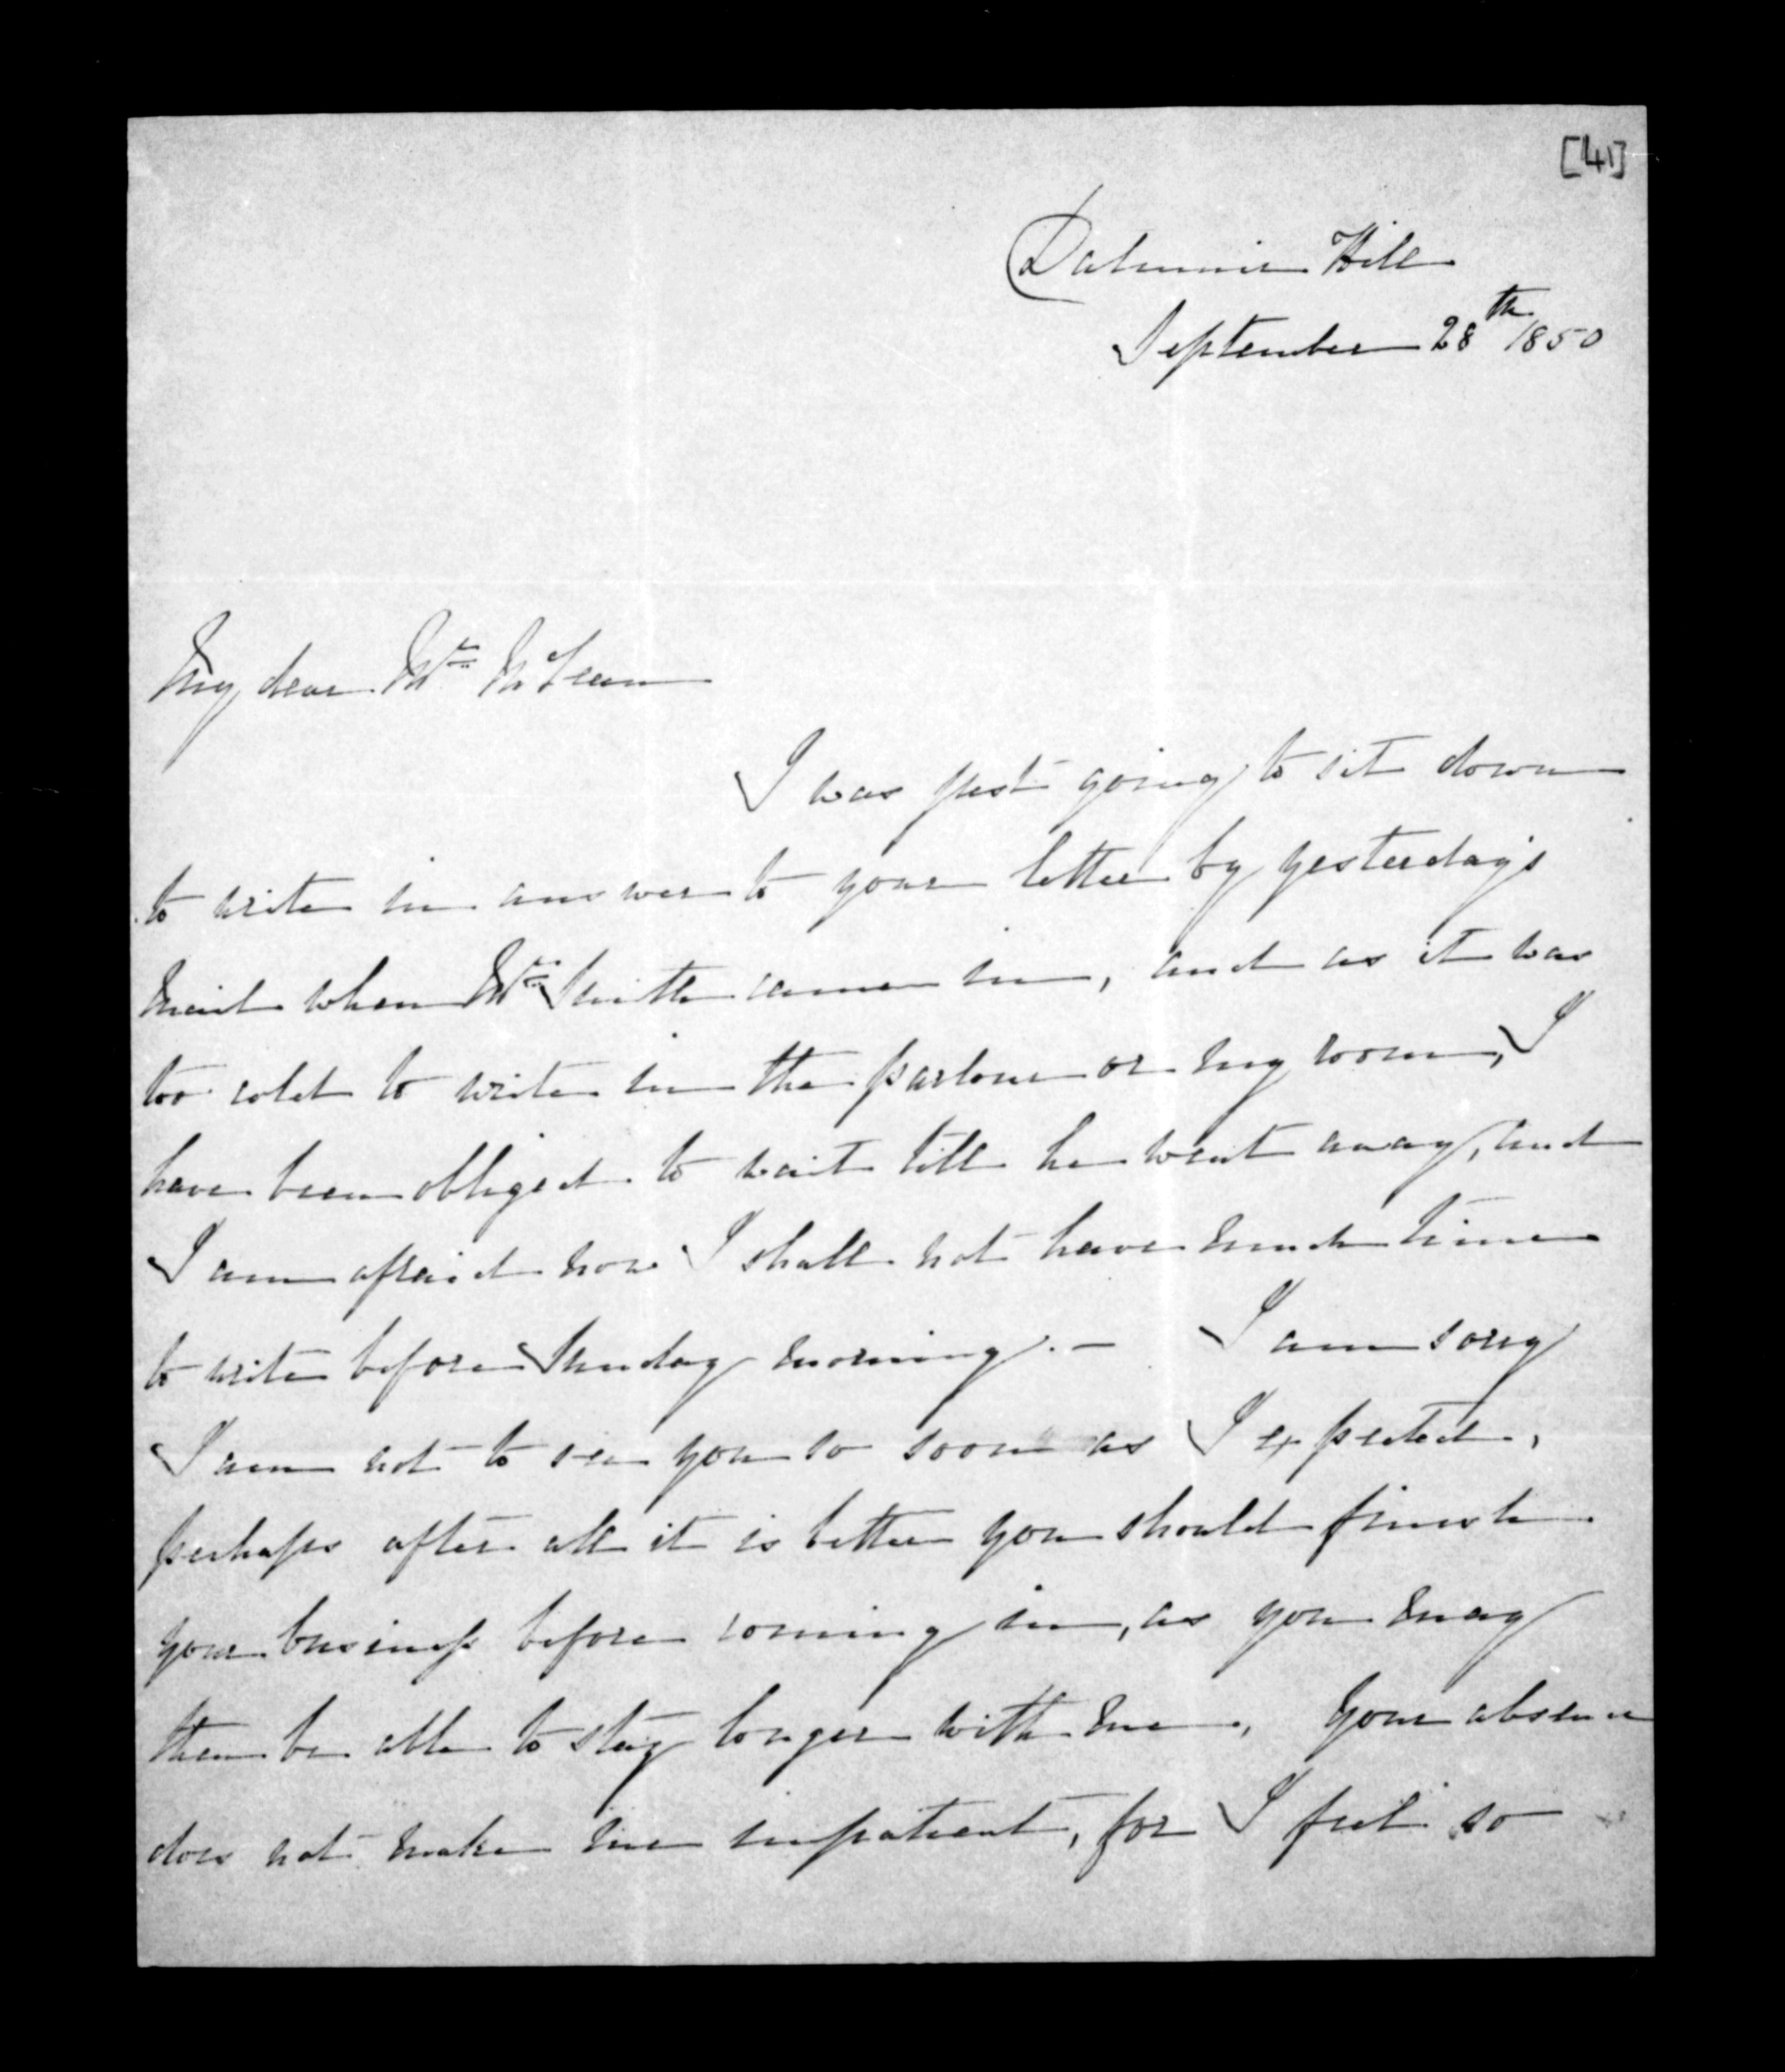 [41]
Dalmuir Hill
September 28th 1850
My dear Mr McLean
I was just going to sit down
to write in answer to your letter by yesterday's
mail when Mr Smith came in, and as it was
too cold to write in the parlour or my room, I
have been obliged to wait till he went away, and
I am afraid now I shall not have much time
to write before Sunday morning. — I am sory
I am not to see you so soon as I expected,
perhaps after all it is better you should finish
your business before coming in, as you may
then be able to stay longer with me, your absence
does not make me impatient, for I feel so